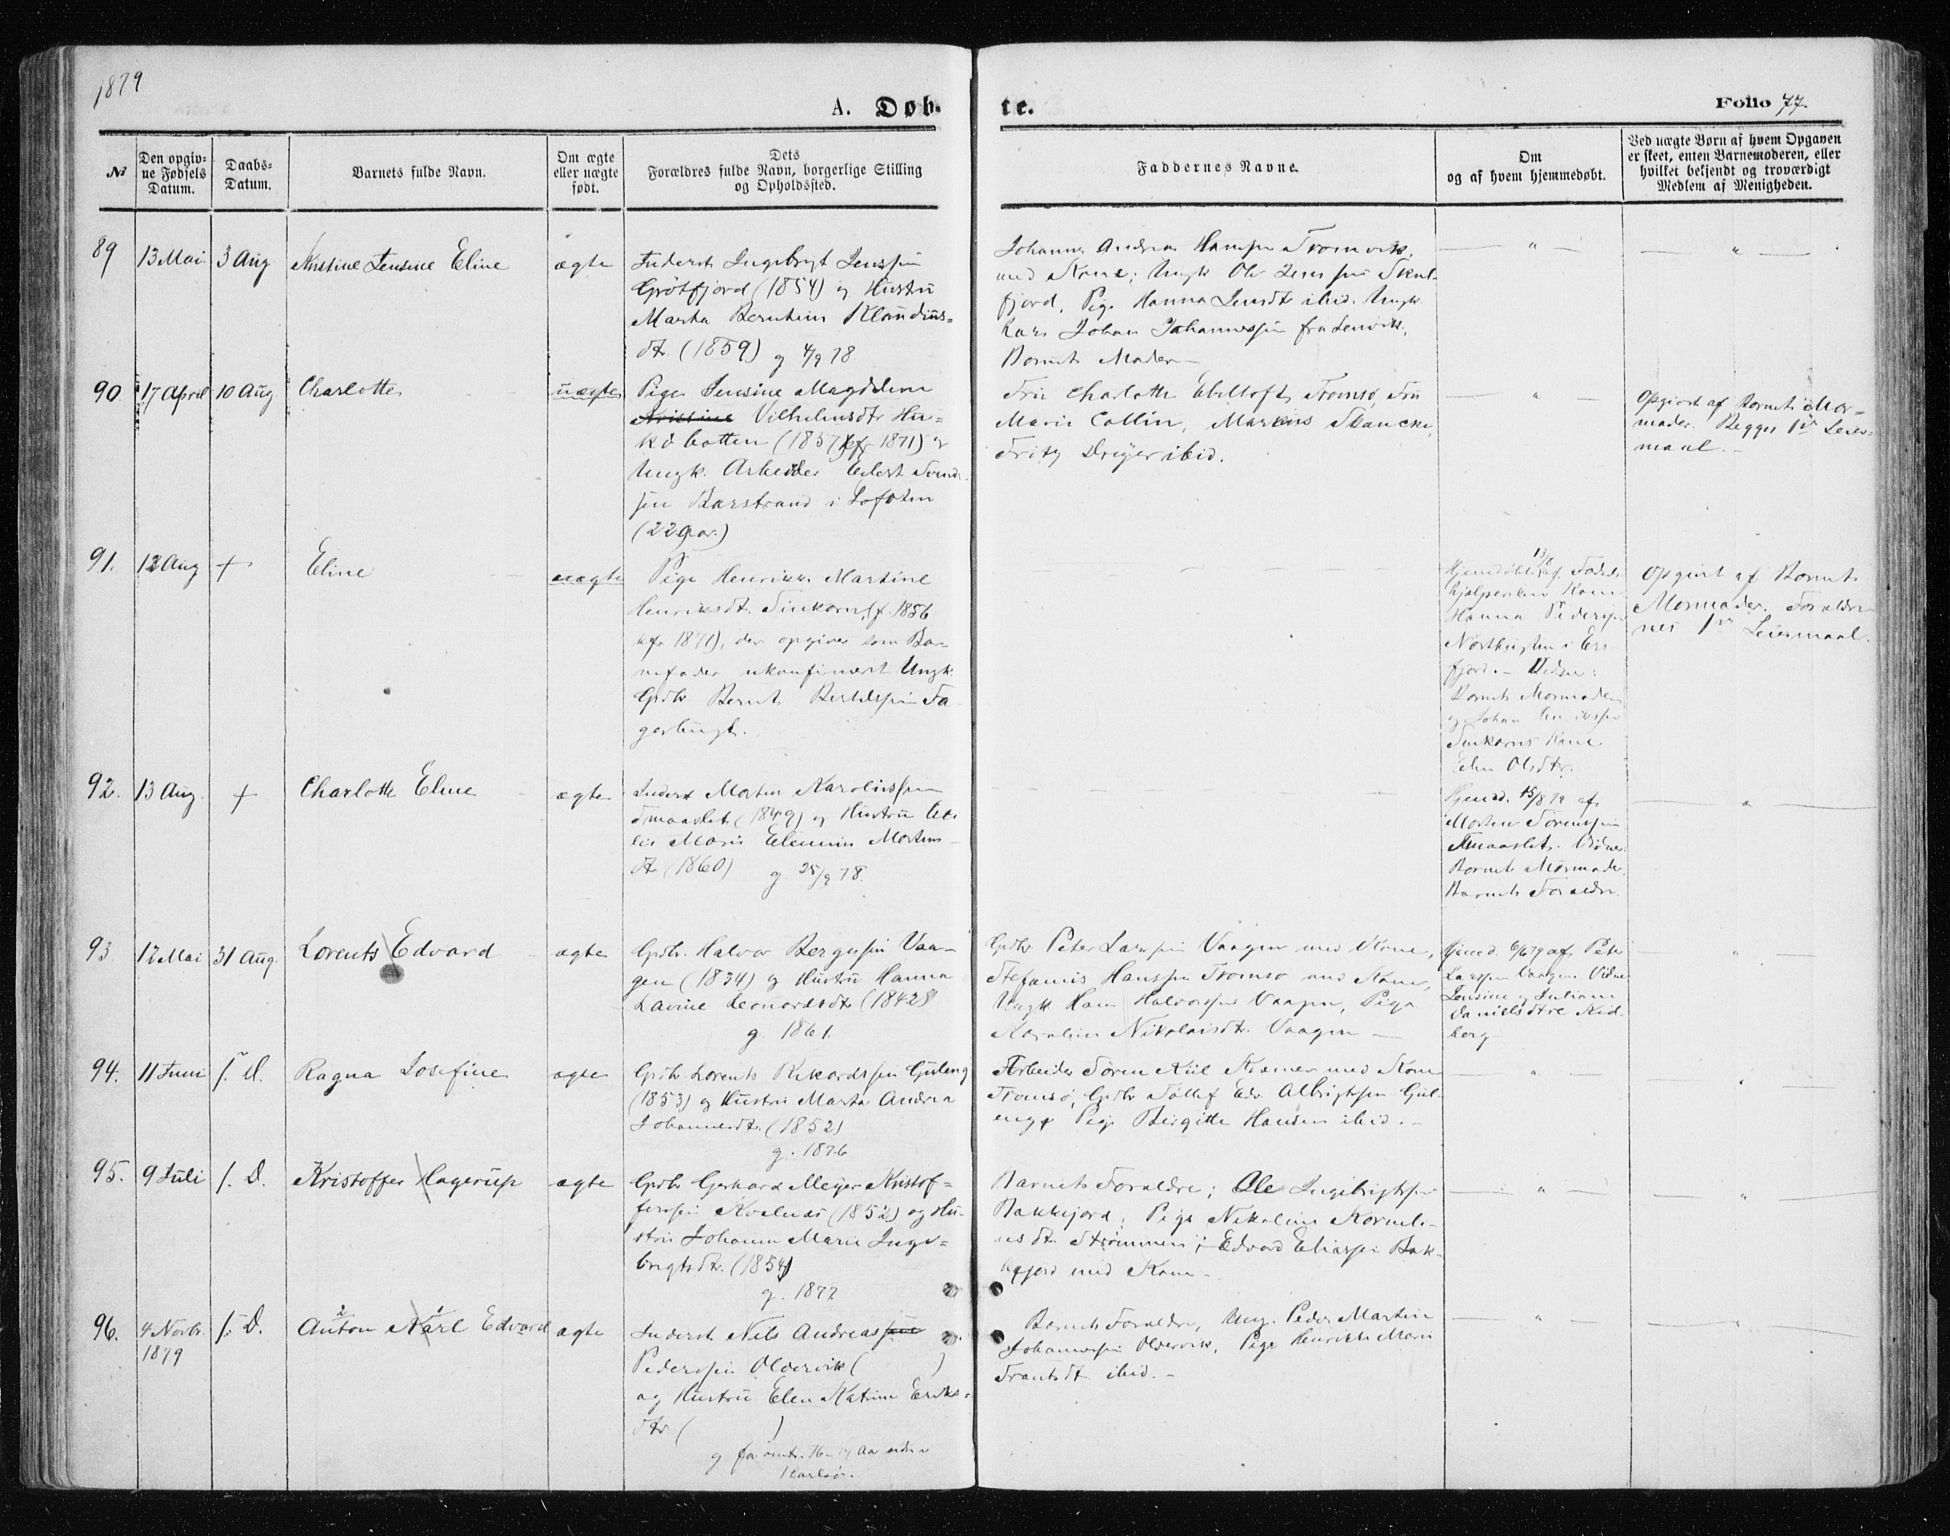 1879
A. Døb-
te.
Folio 77.
№
Den opgiv-
ne Fødsels
Datum.
Daabs-
Datum.
Barnets fulde Navn.
Om ægte
eller uægte
født.
Dets
Forældres fulde Navn, borgerlige Stilling
og Opholdssted.
Faddernes Navne.
Om
og af hvem hjemmedøbt.
Ved uægte Børn af hvem Opgaven
er skeet, enten Barnemoderen, eller
hvilket bekjendt og troværdigt
Medlem af Menigheden.
89
13 Mai
3 Aug
Kristine Jensine Eline
ægte
Inderst Ingebrigt Jenssen
Grötfjord (1854) og Hustru
Marta Berntine Klaudius-
dtr (1859) g 4/9 78
Johannes Andreas Hanssen Tromvik
med Kone; Ungk Ole Jenssen Skul-
fjord, Pige Hanna Jensdtr ibid. Ungk
Lars Johan Johannessen fra Lenvik,
Barnets Moder
90
17 April
10 Aug
Charlotte
uægte
Pige Jensine Magdalene
Kristine Vilhelmsdtr
(1857 kfr 1871) og
Ungk. Arbeider Edert Svend-
sen Barstrand i Lofoten
(22 Aar)
Fru Charlotte Ebeltoft, Tromsø, Fru
Marie Collin, Markus Skancke
Fritz Dreyer ibid.
Opgivet af Barnets Mor-
moder. Begges 1ste Leier-
maal.
91.
12 Aug
+
Eline
uægte
Pige Henrikke Martine
Henriksdtr. Finkorn (f. 1856
kfr 1871), der opgiver som Bar-
nefader ukonfirmeret Ungk.
Grdbr Bernt Bertelssen Fa-
gerbugt.
Hjemdøbt 13/8 af Fødsels
hjælpersken Kone
Hanna Pedersen
i Ers-
fjord. Vidner:
Barnets Mormoder
og Johan Henrikssen
Finkorns Kone
Elen Olsdtr.
Opgivet af Barnets
Mormoder. Foræld-
nes 1ste Leiermaal.
92.
13 Aug.
+
Charlotte Eline
ægte
Inderst Morten Karolinssen
Smaaslet (1849) og Hustru
Marie Elenine Mortens-
dtr (1860) g. 25/9 78.
Hjemd. 15/8 79 af
Morten Sørenssen
Smaaslet. Vidner
Barnets Mormoder
Barnets Forældre
93.
12 Mai
31 Aug.
Lorents Edvard
ægte
Grdbr. Halvor Bergessen Vaa-
gen (1834) og Hustru Hanna
Lavine Leonardsdtr (1842)
g. 1861.
Grdbr Peter Larssen Vaagen med Kone,
Stefanus Hanssen Tromsø med Kone,
Ungk Hans Halvorssen Vaagen, Pige
Karoline Nikolaisdtr. Vaagen
Hjemd. 6/6 79 af Peter
Larssen Vaagen Vidner
Jensine og Juliane
Danielsdtre Kid-
berg
94.
11 Juni
s. D.
Ragna Josefine
ægte
Grdbr Lorents Rikardssen Guleng
(1853) og Hustru Marta Andrea
Johannesdtr. (1852)
g. 1876
Arbeider Søren Kiil Kramer med Kone
Tromsø, Grdbr Tollef Edv. Albrigtsen Gul-
eng, Pige Birgitte Hansen ibid.
95.
9 Juli
s. D.
Kristoffer Hagerup
ægte
Grdbr Gerhard Meyer Kristof-
fersen Kvalnes (1852) og Hu-
stru Johanna Marie Inge-
brigtsdtr. (1854)
g. 1877
Barnets Forældre; Ole Ingebrigtssen
Bakkejord; Pige Nikoline Korneli-
usdtr. Strømmen; Edvard Eliassen Bak-
kejord med Kone
96.
4 Novbr.
1879
s. D.
Anton Karl Edvard
ægte
Inderst Nils Andreassen
Pederssen Oldervik ( )
og Hustru Elen Katrine Eriks-
dtr. ( )
g for omtr. 16-17 Aar siden
i Karlsø.
Barnets Forældre, Ung. Peder Martin
Johannessen Oldervik, Pige Henrikke Marie
Frantsdtr. ibid.